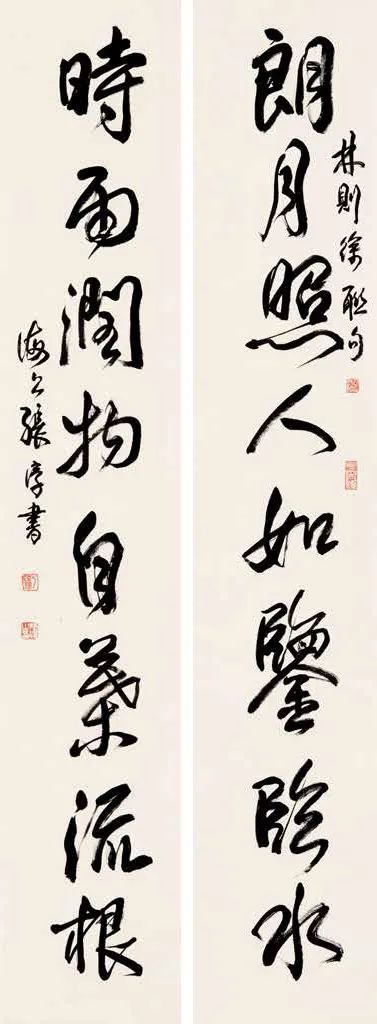 朗月照人如鑒臨水
林則徐聯句
時雨潤物自葉流根
張淳書